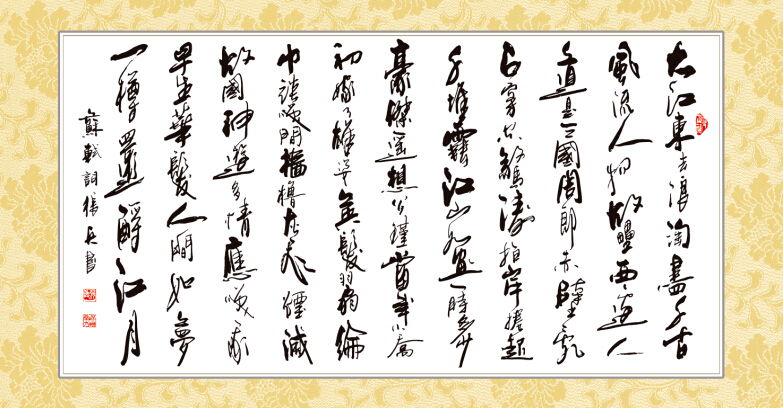 大江東去浪淘盡千古
風流人物故壘西邊人
道是三國周郎赤壁亂
石穿空驚濤拍岸捲起
千堆雪江山如畫一時多少
豪傑遙想公瑾當年小喬
初嫁了雄姿英發羽扇綸
巾談笑間檣櫓灰飛煙滅
故國神遊多情應笑我
早生華髮人間如夢
一樽還酹江月
蘇軾詞 楊 書